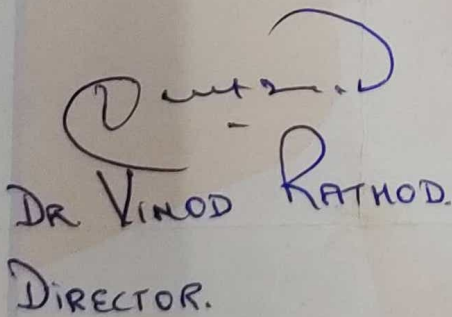 DR VINOD RATHOD.
DIRECTOR.